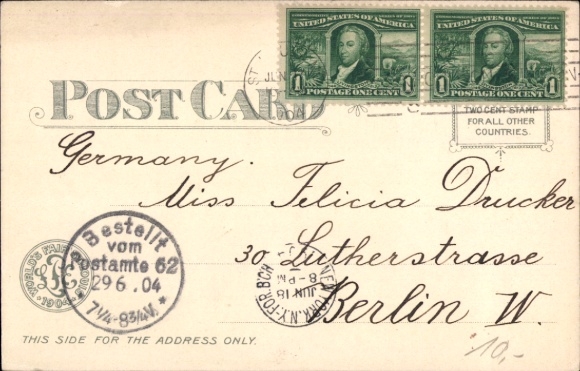 UNITED STATES OF AMERICA
1 1
POSTAGE ONE CENT
UNITED STATES OF AMERICA
1 1
POSTAGE ONE CENT
ST
JUN
POST CARD
TWO CENT STAMP
FOR ALL OTHER
COUNTRIES.
Germany.
Miss Felicia Drucker
30 Lutherstrasse
Berlin W.
Bestellt
vom
Postamte 62
29 6.04
7¼-8¾V.
WORLD'S FAIR ST. LOUIS
1904
NEW YORK, N.Y.-FOR.BCH
JUN 18
8-PM
THIS SIDE FOR THE ADDRESS ONLY.
10,-